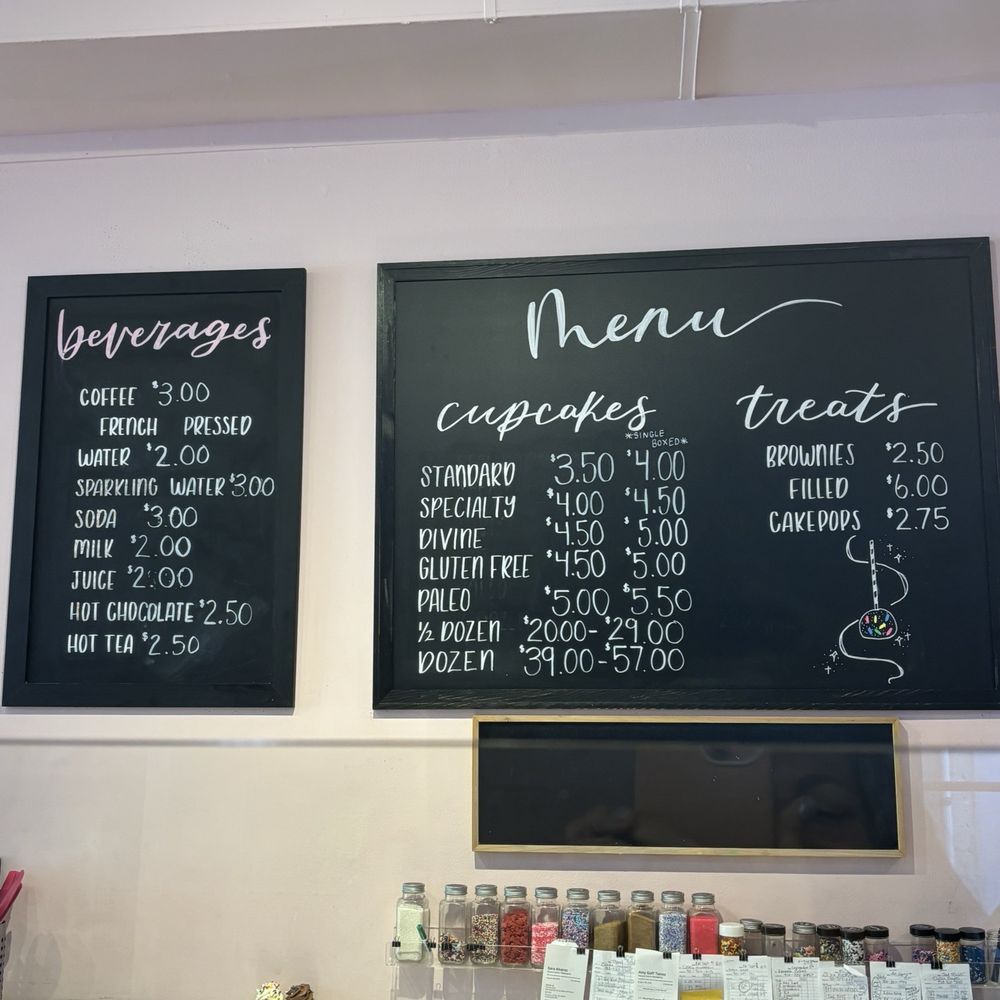 beverages
COFFEE $3.00
FRENCH PRESSED
WATER $2.00
SPARKLING WATER $3.00
SODA $3.00
MILK $2.00
JUICE $2.00
HOT CHOCOLATE $2.50
HOT TEA $2.50
Menu
cupcakes
*SINGLE
BOXED*
STANDARD $3.50 $4.00
SPECIALTY $4.00 $4.50
DIVINE $4.50 $5.00
GLUTEN FREE $4.50 $5.00
PALEO $5.00 $5.50
½ DOZEN $20.00-$29.00
DOZEN $39.00-$57.00
treats
BROWNIES $2.50
FILLED $6.00
CAKEPOPS $2.75